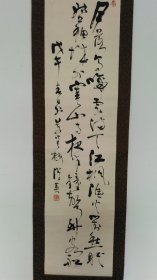 月落烏啼霜滿天江楓漁火對愁眠
姑蘇城外寒山寺夜半鐘聲到客船
戊午